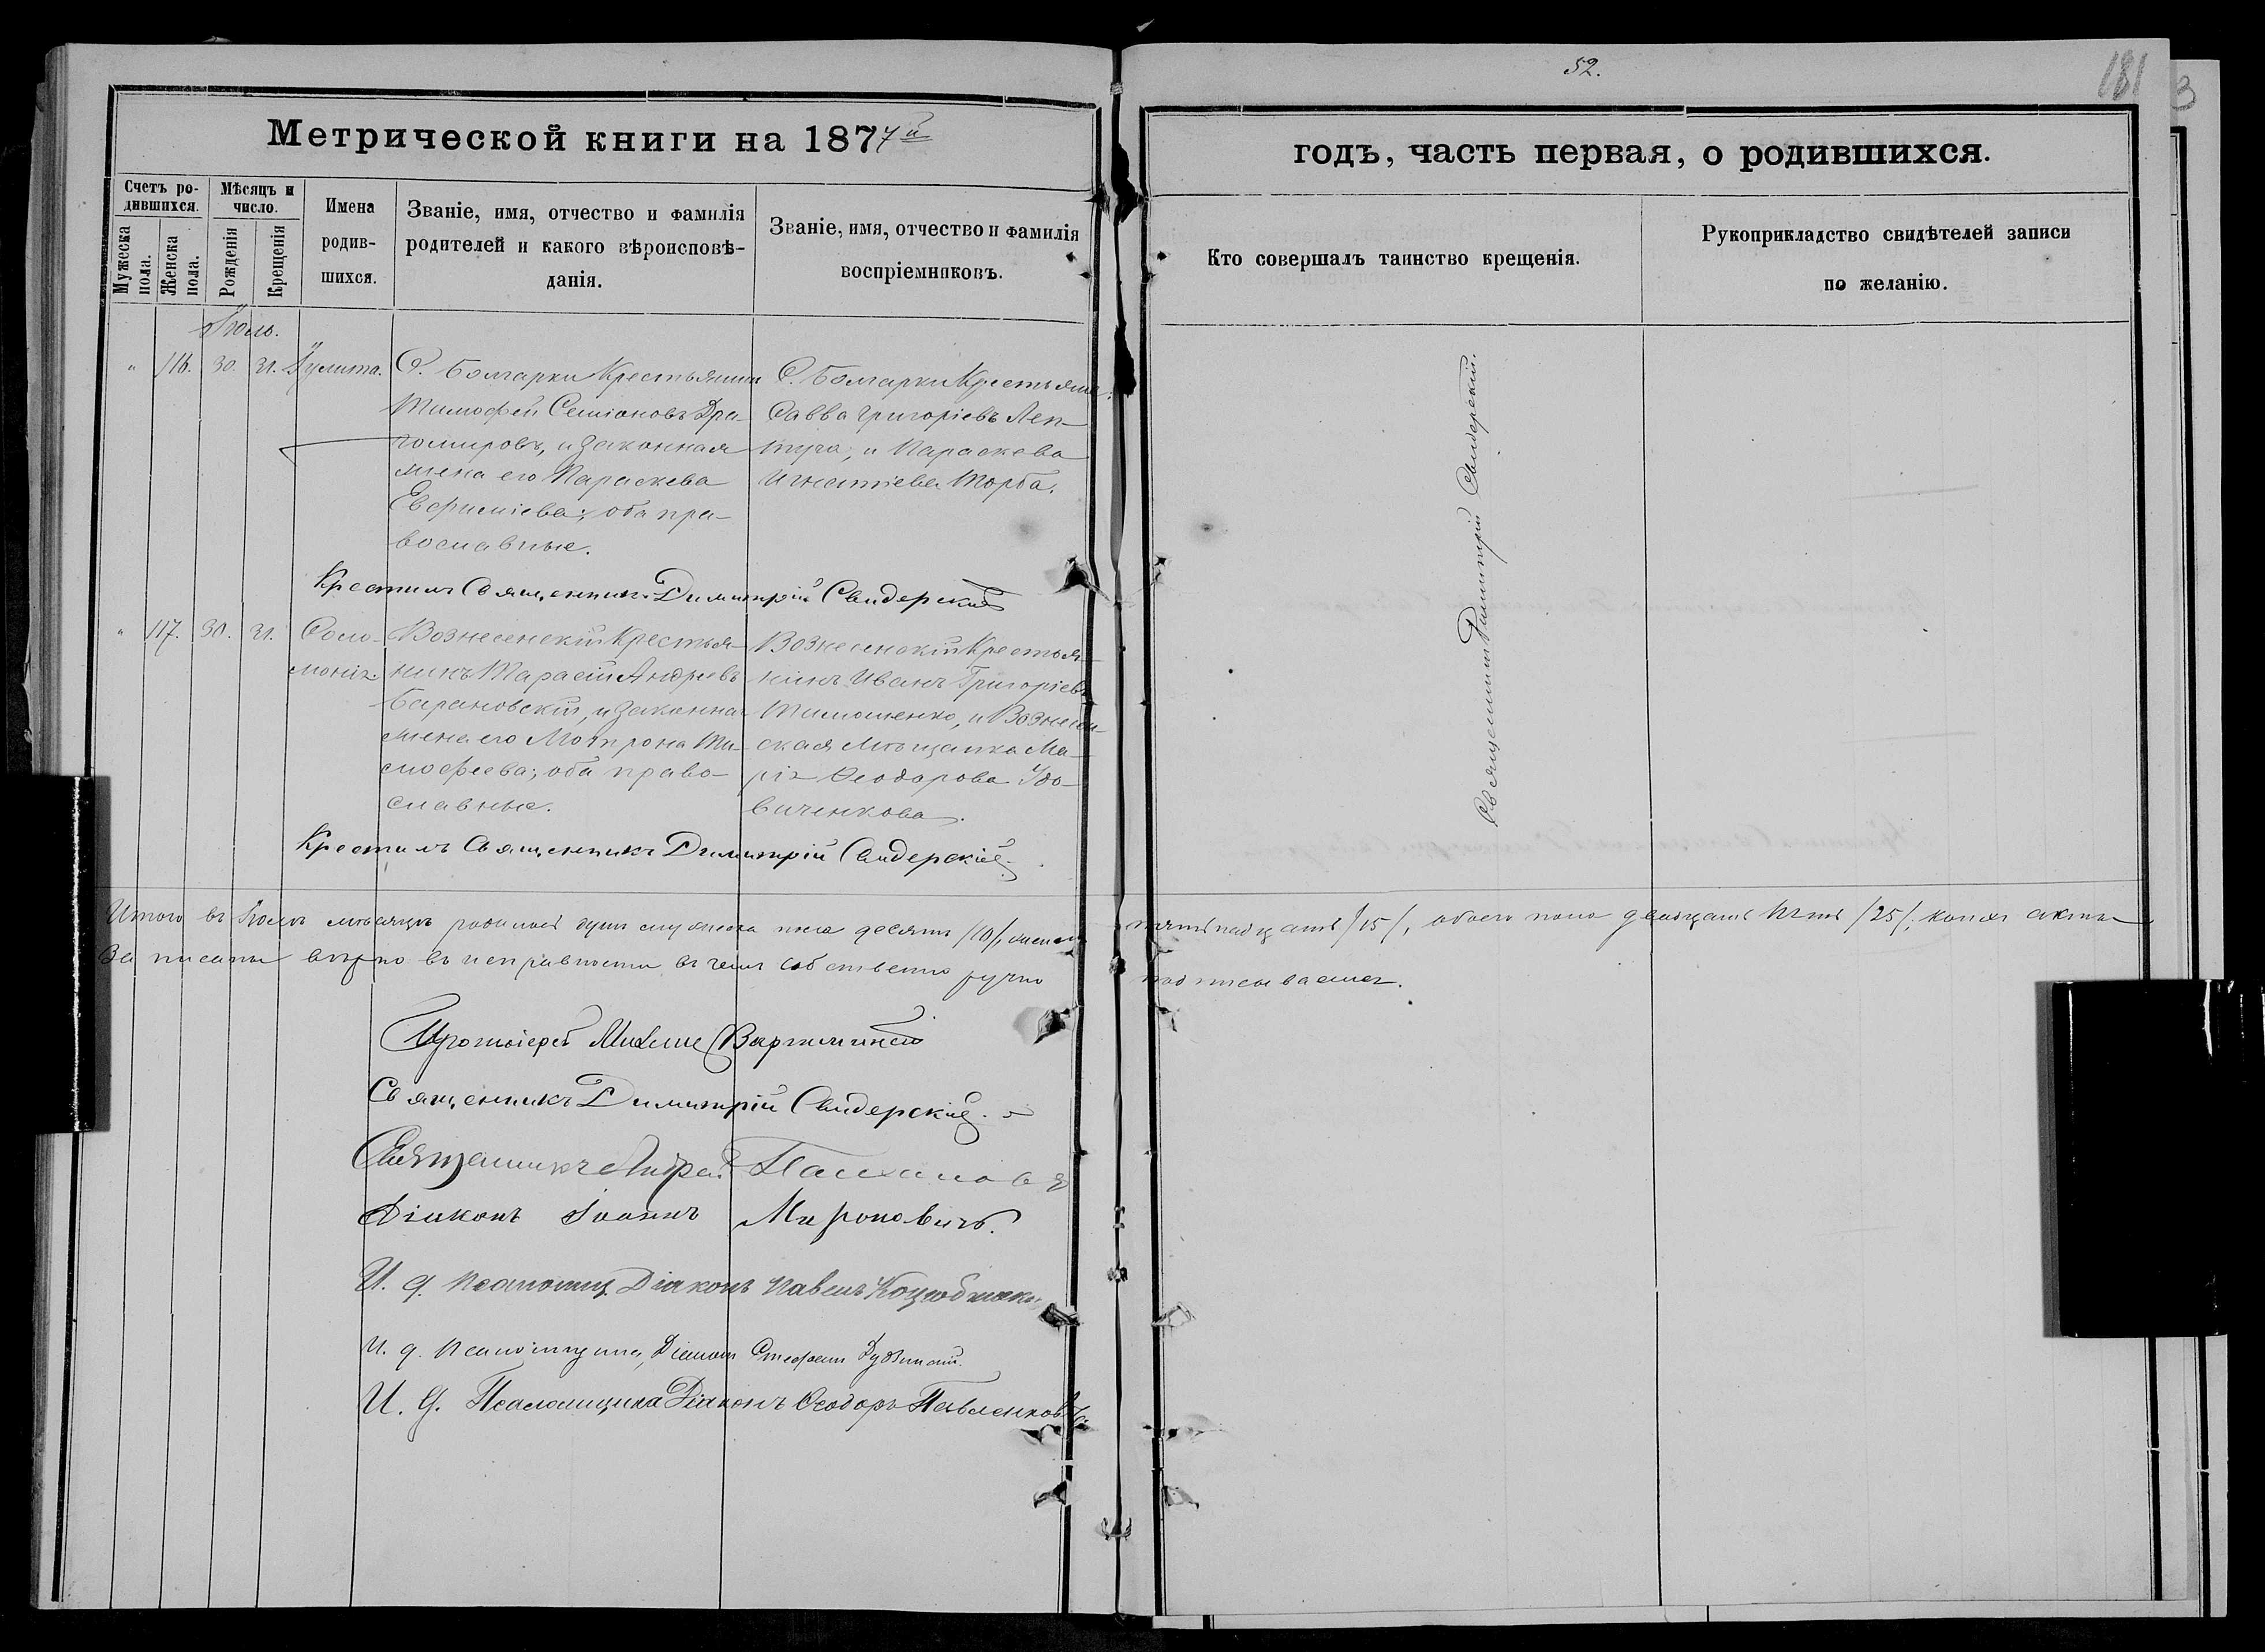 52.
181
3
Метрической книги на 1877й
годъ, часть первая, о родившихся.
Счетъ ро-
дившихся.
Мужеска
пола.
Женска
пола.
Мѣсяцъ и
число.
Рожденія
Крещенія
Имена
родив-
шихся.
Званіе, имя, отчество и фамилія
родителей и какого вѣроисповѣ-
данія.
Званіе, имя, отчество и фамилія
воспріемниковъ.
Кто совершалъ таинство крещенія.
Рукоприкладство свидѣтелей записи
по желанію.
Іюль.
" 116. 30. 31. Іулита.
С. Болгарки Крестьянинъ
Тимофей Семіоновъ Дра-
гомировъ, и законная
жена его Параскева
Евфиміева; оба пра-
вославные.
С. Болгарки Крестьяне:
Савва Григоріевъ Леп-
туга, и Параскева
Игнатіева Торба.
Крестилъ Священникъ Димитрій Свидерскій
" 117. 30. 31. Соло-
монія.
Вознесенскій Крестья-
нинъ Тарасій Андреевъ
Барановскій, и законная
жена его Мотрона Ти-
мофеева; оба право-
славные.
Вознесенскій Крестья-
нинъ Иванъ Григоріевъ
Тимошенко, и Вознесен-
ская Мѣщанка Ма-
рія Ѳеодорова Удо-
виченкова.
Крестилъ Священникъ Димитрій Свидерскій.
Священникъ Димитрій Свидерскій.
Итого въ Іюлѣ мѣсяцѣ родилось душъ мужеска пола десять /10/, женска пятьнадцать /15/, обоего пола двадцать пять /25/; коихъ акты
записаны вѣрно въ исправности въ чемъ собственно ручно подписываемся.
Протоіерей
Священникъ Димитрій Свидерскій.
Священникъ Андрей
Діаконъ Іоаннъ Мироновичъ.
И. д. Псаломщ. Діаконъ Павелъ
И. д. Псаломщика, Діаконъ Стефанъ
И. д. Псаломщика Діаконъ Ѳеодоръ Павленковъ